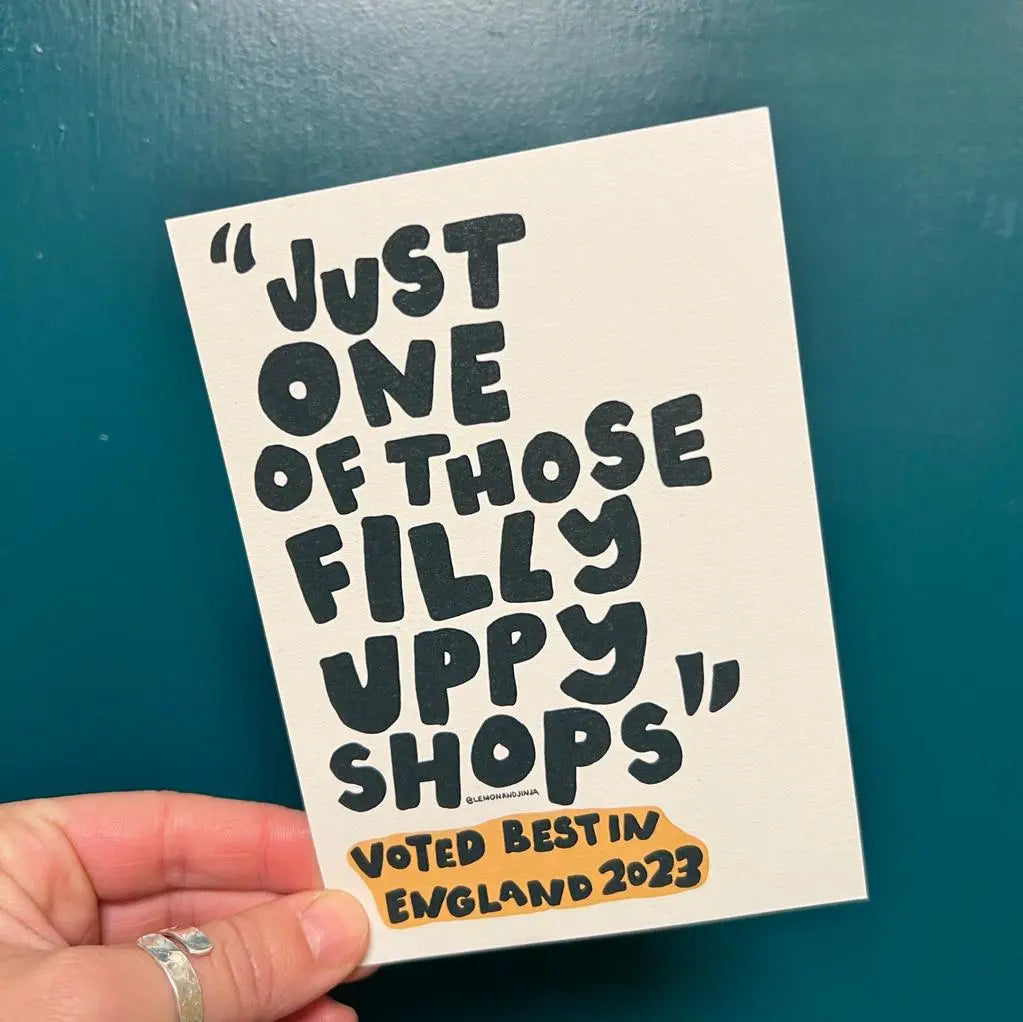 “JUST
ONE
OF THOSE
FILLY
UPPY
SHOPS”
@LEMONANDJINJA
VOTED BEST IN
ENGLAND 2023